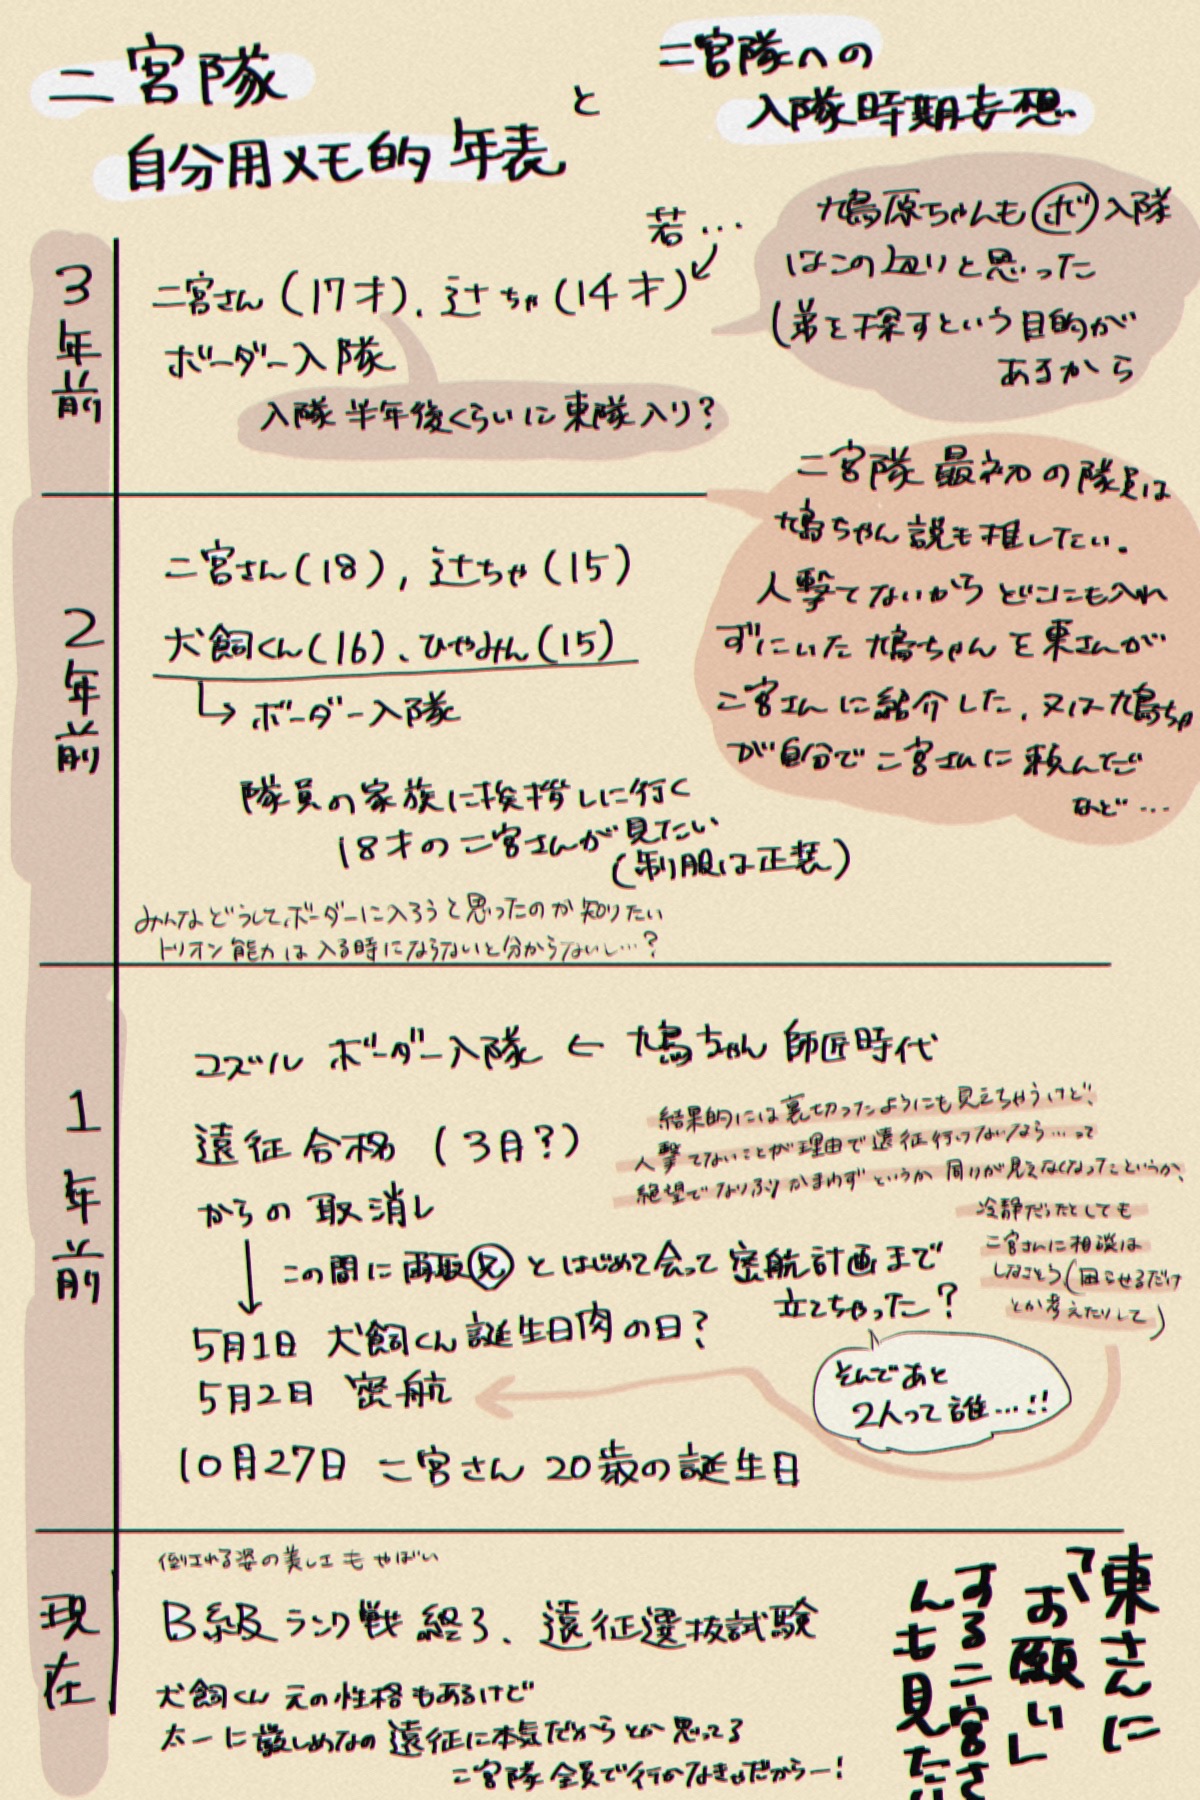 二宮隊
自分用メモ的 年表
と
二宮隊への
入隊時期妄想
3年前
若…
二宮さん(17才)、辻ちゃ(14才)
ボーダー入隊
入隊半年後くらいに東隊入り?
鳩原ちゃんもボ入隊
はこの辺りと思った
(弟を探すという目的が
あるから
二宮隊 最初の隊員は
鳩ちゃん説も推したい。
人撃てないからどこにも入れ
ずにいた鳩ちゃんを東さんが
二宮さんに紹介した、又は鳩ちゃ
が自分で二宮さんに頼んだ
など…
2年前
二宮さん(18), 辻ちゃ(15)
犬飼くん(16)、ひゃみん(15)
↳ ボーダー入隊
隊員の家族に挨拶しに行く
18才の二宮さんが見たい
(制服は正装)
みんなどうしてボーダーに入ろうと思ったのか知りたい
トリオン能力は入る時にならないと分からないし…?
1年前
ユズル ボーダー入隊 ← 鳩ちゃん師匠時代
遠征合格(3月?)
からの取消し
結果的には裏切ったようにも見えちゃうけど、
人撃てないことが理由で遠征行けないなら…って
絶望でなりふりかまわずというか周りが見えなくなったというか、
冷静だったとしても
二宮さんに相談は
しなさそう(困らせるだけ
とか考えたりして)
↓ この間に雨取兄とはじめて会って密航計画まで
立てちゃった?
そんであと
2人って誰…!!
5月1日 犬飼くん誕生日肉の日?
5月2日 密航
10月27日 二宮さん 20歳の誕生日
現在
倒される姿の美しさもやばい
B級ランク戦 終了、遠征選抜試験
犬飼くん 元の性格もあるけど
太一に厳しめなの遠征に本気だからとか思ってる
二宮隊全員で行かなきゃだからー!
東さんに
「お願い」
する二宮さ
んも見たい